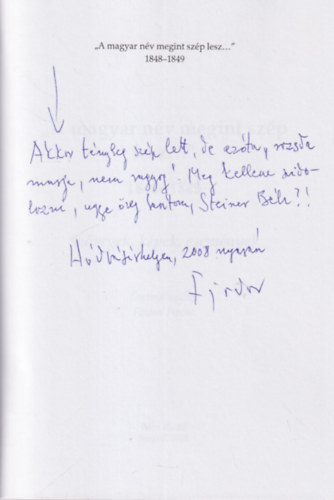 „A magyar név megint szép lesz...”
1848–1849
Akkor tényleg szép lett, de azóta, rozsda
marja, nem ragyog! Meg kellene sido-
lozni, ugye öreg barátom, Steiner Béla?!
Hódvásárhelyen, 2008 nyarán